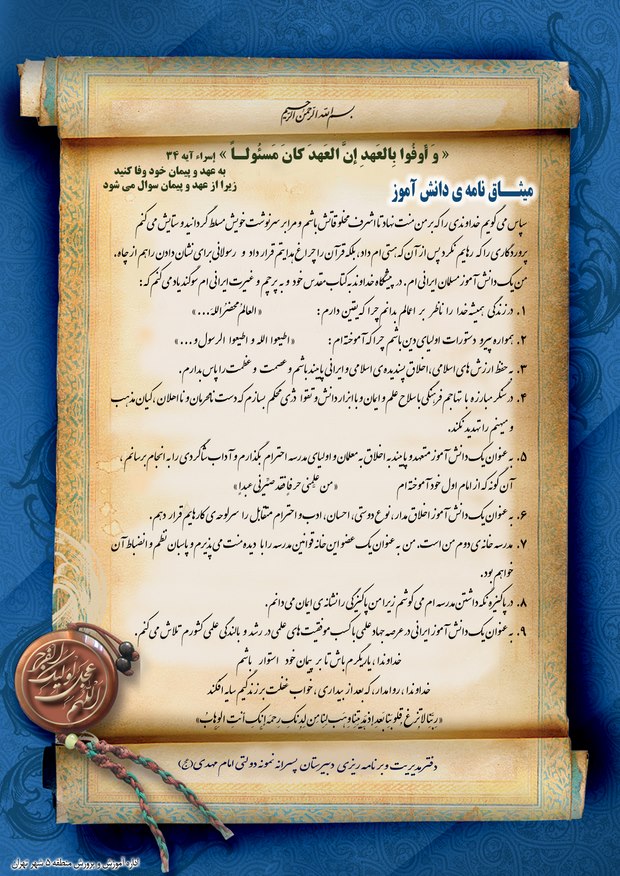 بسم الله الرحمن الرحیم
« وَ أَوفُوا بِالعَهدِ إِنَّ العَهدَ کانَ مَسئُولاً » إسراء آیه ۳۴
به عهد و پیمان خود وفا کنید
زیرا از عهد و پیمان سوال می شود
میثاق نامه ی دانش آموز
سپاس می گویم خداوندی را که بر من منت نهاد تا اشرف مخلوقاتش باشم و مرا بر سرنوشت خویش مسلط گردانید و ستایش می کنم
پروردگاری را که رهایم نکرد پس از آن که هستی ام داد، بلکه قرآن را چراغ هدایتم قرار داد و رسولانی برای نشان دادن راهم از چاه.
من یک دانش آموز مسلمان ایرانی ام. در پیشگاه خداوند به کتاب مقدس خود و به پرچم و غیرت ایرانی ام سوگند یاد می کنم که :
۱. در زندگی همیشه خدا را ناظر بر اعمالم بدانم چرا که یقین دارم : « العالمُ محضرُ اللهِ... »
۲. همواره پیرو دستورات اولیای دین باشم چرا که آموخته ام : « اطیعوا الله و اطیعوا الرسول و... »
۳. به حفظ ارزش های اسلامی، اخلاق پسندیده ی اسلامی و ایرانی پایبند باشم و عصمت و عظمت را پاس بدارم.
۴. در سنگر مبارزه با تهاجم فرهنگی با سلاح علم و ایمان و با ابزار دانش و تقوا دژی محکم بسازم که دست نامحرمان و نااهلان، کیان مذهب
و میهنم را تهدید نکند.
۵. به عنوان یک دانش آموز متعهد و پایبند به اخلاق به معلمان و اولیای مدرسه احترام بگذارم و آداب شاگردی را به انجام برسانم ،
آن گونه که از امام اول خود آموخته ام « من علمنی حرفا فقد صیرنی عبدا »
۶. به عنوان یک دانش آموز اخلاق مدار، نوع دوستی، احسان، ادب و احترام متقابل را سرلوحه ی کارهایم قرار دهم.
۷. مدرسه خانه ی دوم من است، من به عنوان یک عضو این خانه قوانین مدرسه را با دیده منت می پذیرم و پاسبان نظم و انضباط آن
خواهم بود.
۸. در پاکیزه نگه داشتن مدرسه ام می کوشم زیرا من پاکیزگی را نشانه ی ایمان می دانم.
۹. به عنوان یک دانش آموز ایرانی در عرصه جهاد علمی با کسب موفقیت های علمی در رشد و بالندگی علمی کشورم تلاش می کنم.
خداوندا ، یاریگرم باش تا بر پیمان خود استوار باشم
خداوندا ، روا مدار، که بعد از بیداری ، خواب غفلت بر زندگیم سایه افکند
« ربنا لا تزغ قلوبنا بعد اذ هدیتنا و هب لنا من لدنک رحمة انک انت الوهاب »
دفتر مدیریت و برنامه ریزی دبیرستان پسرانه نمونه دولتی امام مهدی (عج)
اللهم عجل لولیک الفرج
اداره آموزش و پرورش منطقه ۵ شهر تهران